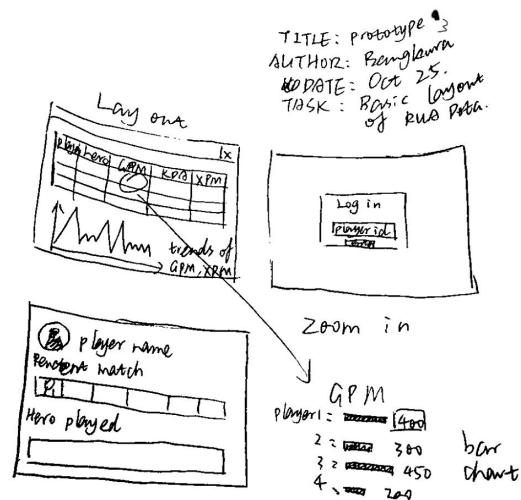 TITLE: prototype 3
AUTHOR: Bangkura
DATE: Oct 25.
TASK: Basic layout
of Data.
Lay out
x
player hero GPM KDA XPM
trends of
GPM, XPM
Log in
player id
Zoom in
player name
match
Hero played
GPM
player 1 = 400
2 = 300
3 = 450
4 200
bar
chart